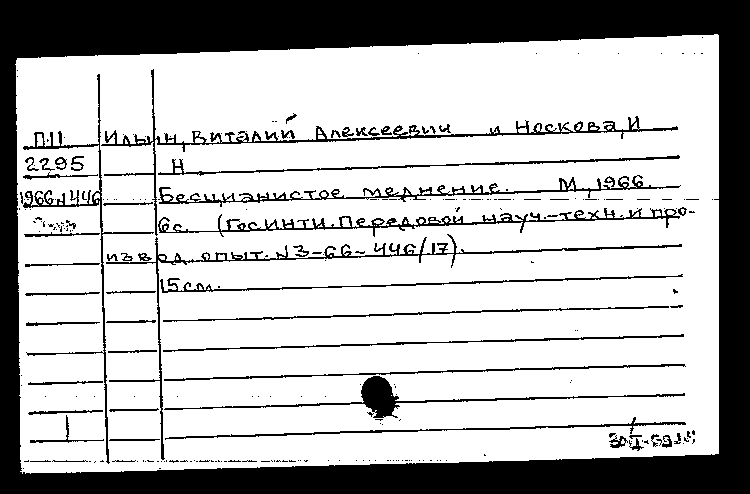 П.11 Ильин, Виталий Алексеевич и Носкова, И
2295 Н
1966 N 446 Бесцианистое меднение. М., 1966.
6с. (ГосИНТИ. Передовой науч.-техн. и про-
извод. опыт. N 3-66-446/17).
15 см.
30/I-69